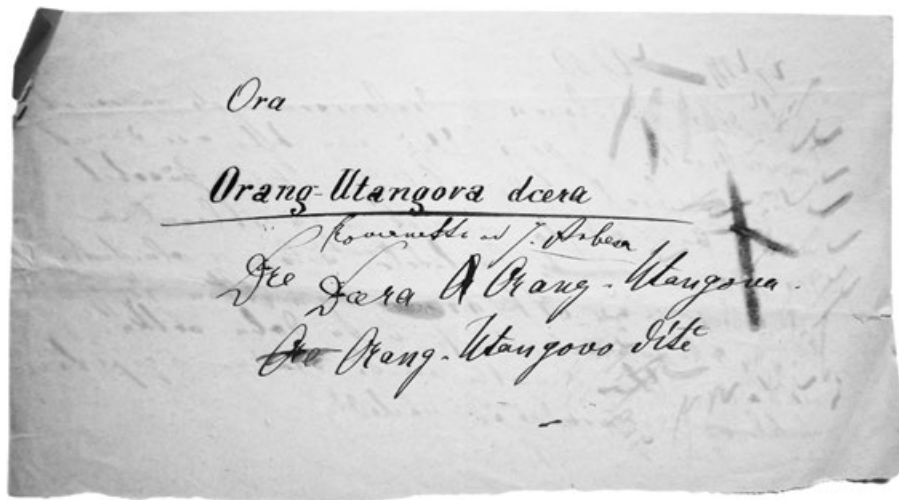 Ora
Orang-Utangova dcera
Romanetto od J. Arbesa
Dcera Orang-Utangova.
Orang-Utangovo dítě